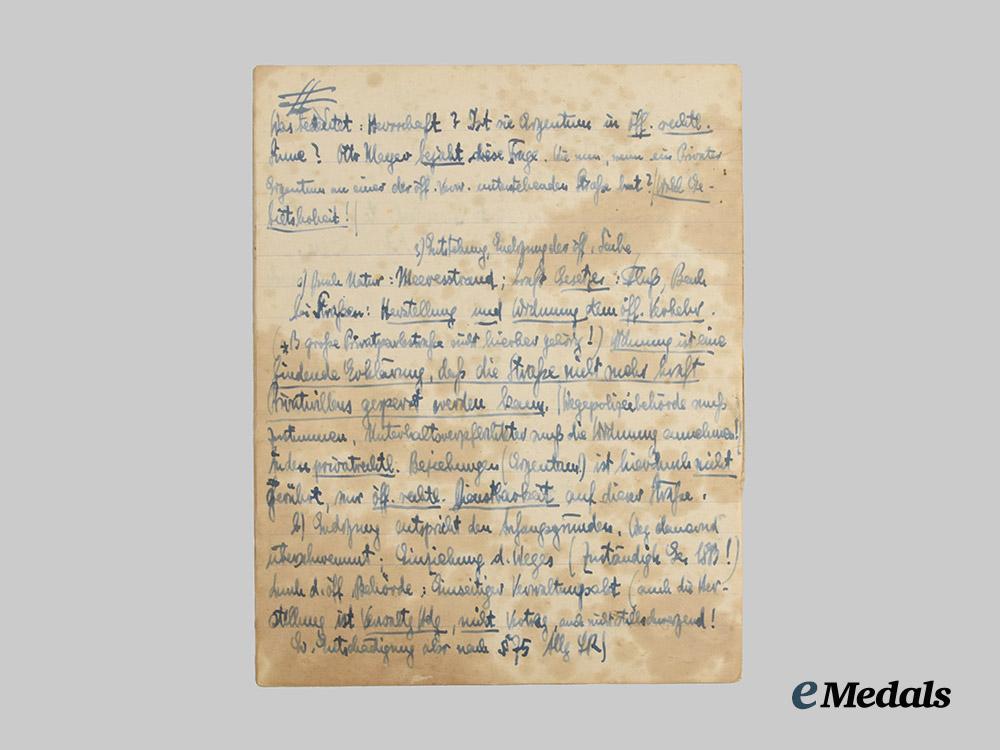 Was bedeutet: Herrschaft? Ist sie Eigentum in öff. rechtl.
Sinne? Otto Mayer bejaht diese Frage. Wie nun, wenn ein Privater
Eigentum an einer der öff. Verw. unterstehenden Straße hat? (Wohl Ge-
bietshoheit!)
3) Entstehung, Endigung der öff. Sache
a) Durch Natur: Meeresstrand; kraft Gesetzes: Fluß, Bach
bei Straßen: Herstellung und Widmung dem öff. Verkehr.
(z.B. große Privatparkstraße nicht hierher gehörig!) Widmung ist eine
bindende Erklärung, daß die Straße nicht mehr kraft
Privatwillens gesperrt werden kann. (Wegepolizeibehörde muß
zustimmen, Unterhaltsverpflichteter muß die Widmung annehmen!
In den privatrechtl. Beziehungen (Eigentum) ist hierdurch nicht
gerührt, nur öff. rechtl. Dienstbarkeit auf dieser Straße.
b) Endigung entspricht den Anfangsgründen. Weg dauernd
überschwemmt; Einziehung d. Weges (Zuständigk. Ge. 1883!)
durch d. öff. Behörde; Einseitiger Verwaltungsakt (auch die Her-
stellung ist Verwaltg, nicht Vertrag, auch nicht stillschweigend!
Entschädigung aber nach § 75 Allg LR)
eMedals